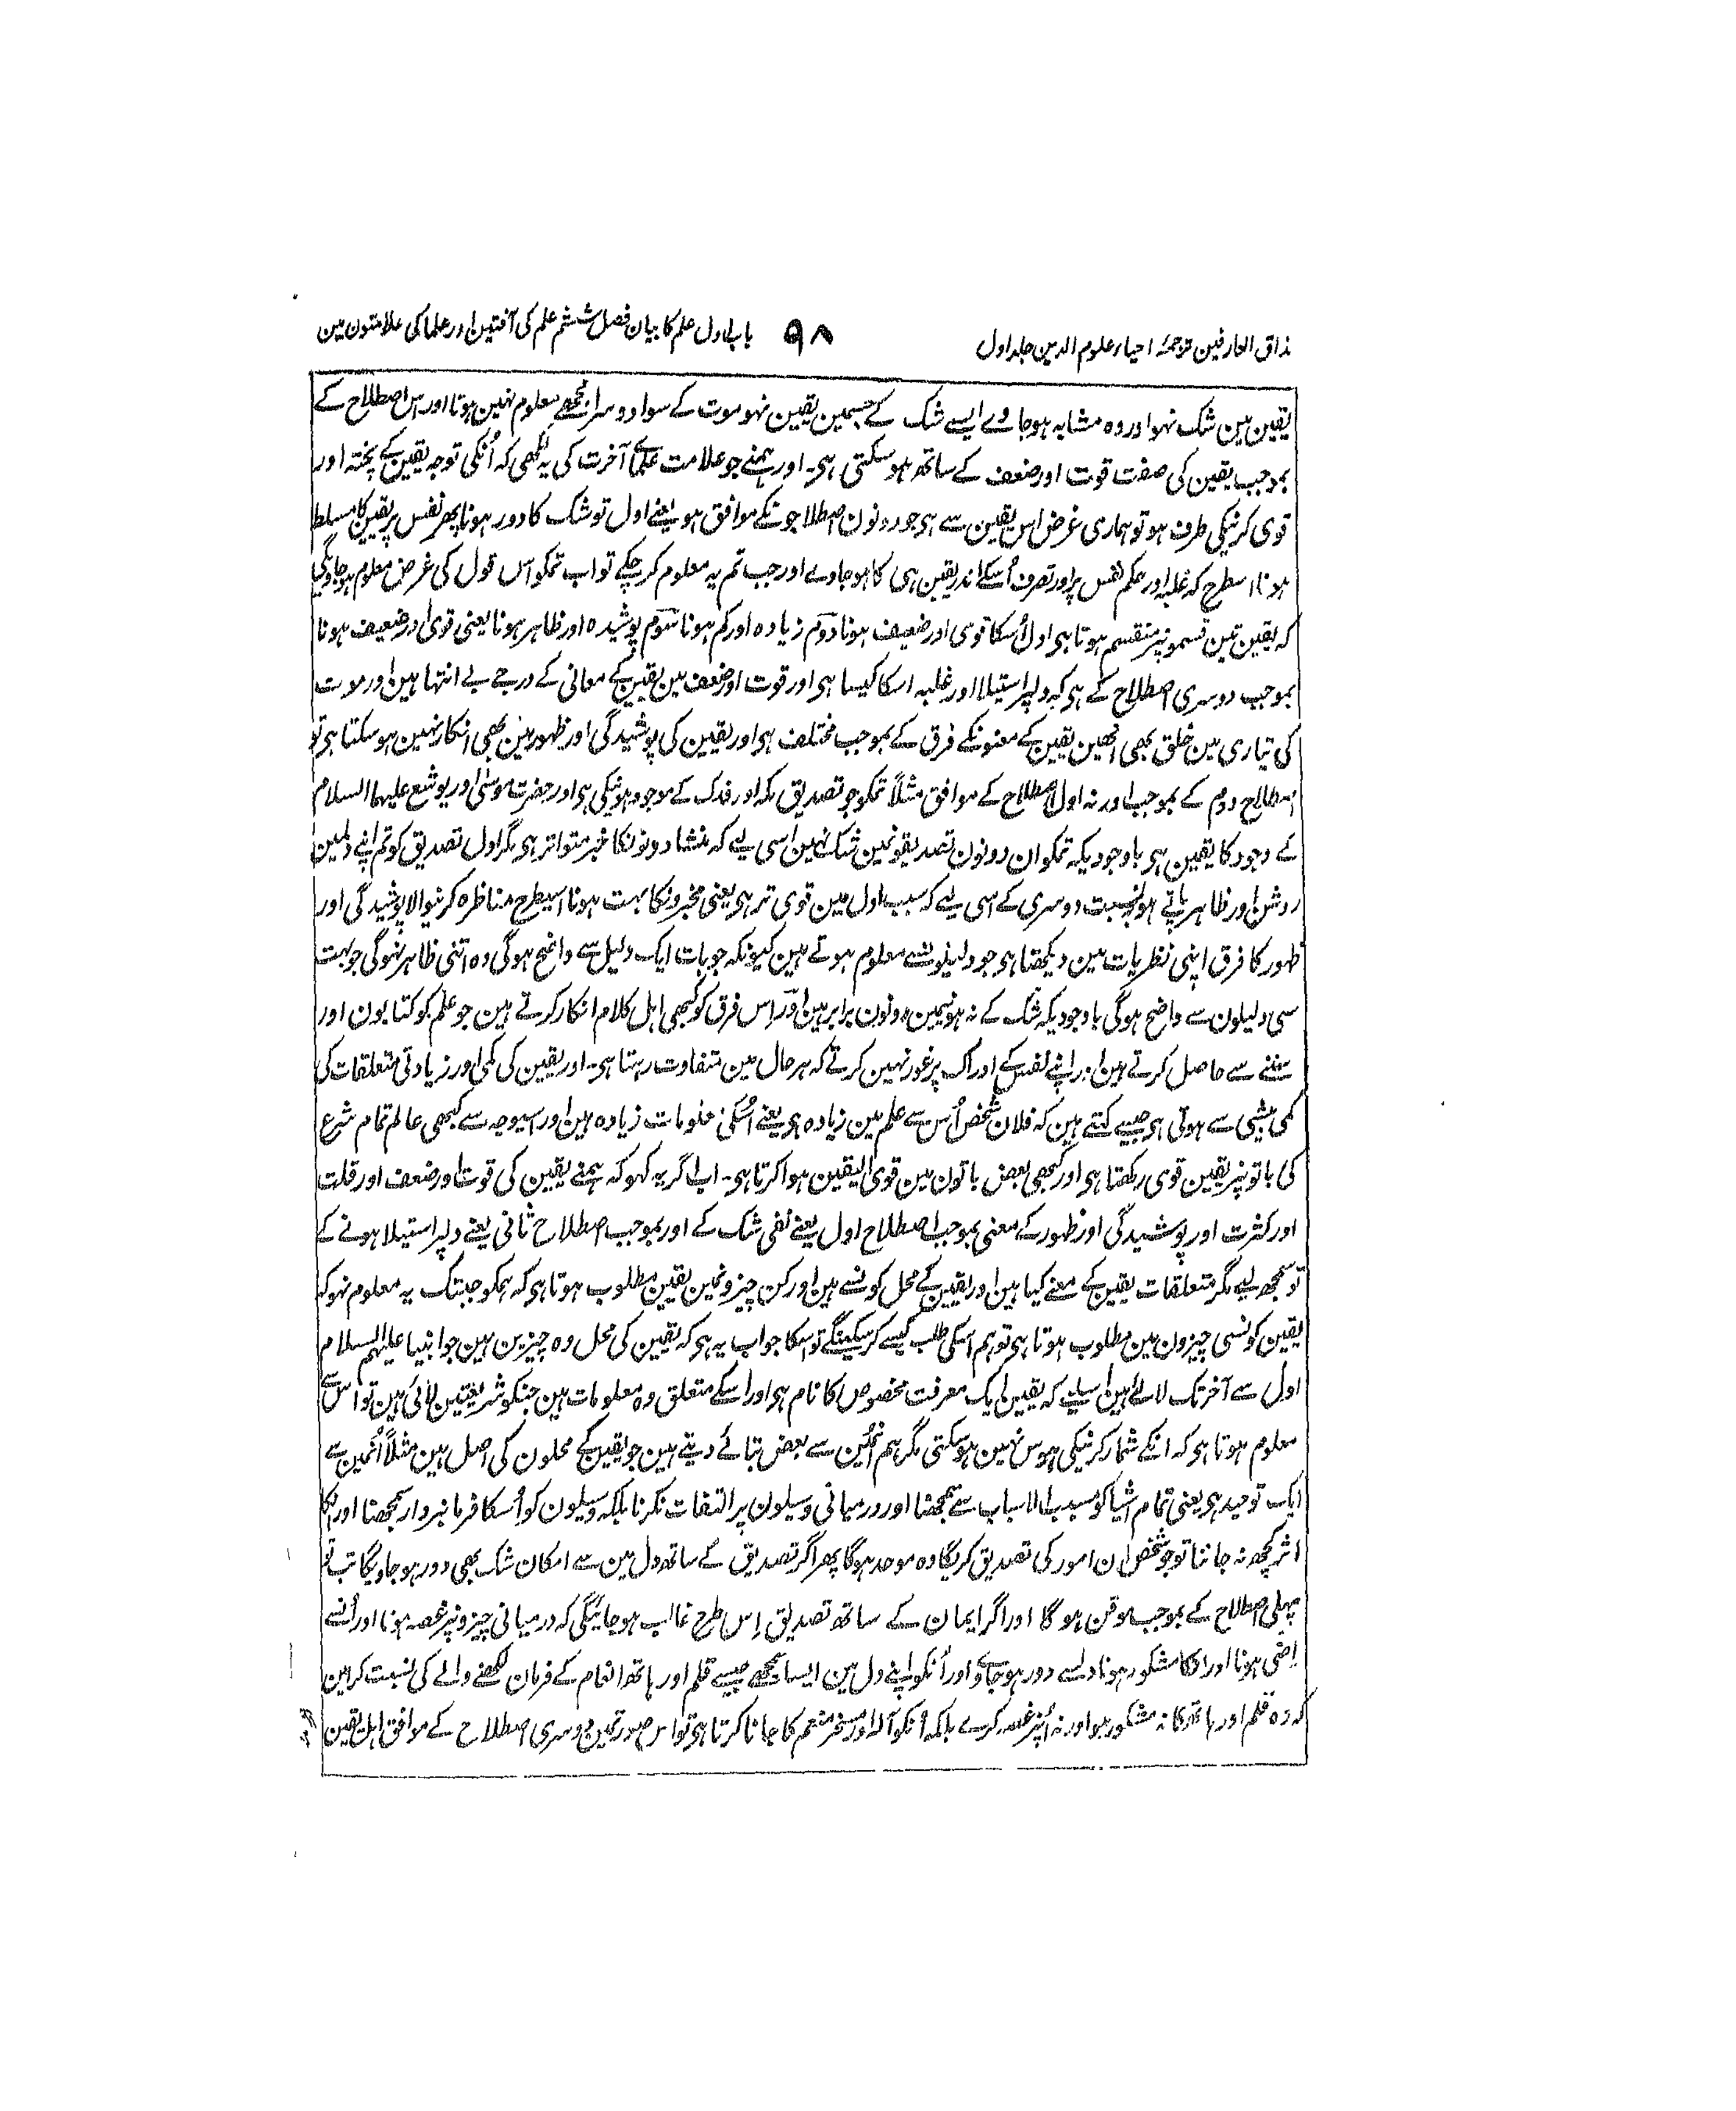 مذاق العارفین ترجمۂ احیاء علوم الدین جلد اول
۹۸
باب اول علم کا بیان فصل ششم علم کی آفتین اور علما کی علامتون مین
یقین مین شک نہو اور وہ مشابہ ہو جاوے ایسے شک کے جسمین یقین نہو موت کے سوا دوسرا مجھے معلوم نہین ہوتا اور اس اصطلاح کے
بموجب یقین کی صفت قوت اور ضعف کے ساتھ ہو سکتی ہی۔ اور ہمنے جو علامت علمائے آخرت کی یہ لکھی کہ اُنکی توجہ یقین کے پختہ اور
قوی کرنیکی طرف ہو تو ہماری غرض اس یقین سے ہی جو دونون اصطلاحونکے موافق ہو یعنے اول تو شک کا دور ہونا پھر نفس پر یقین کا مسلط
ہونا اسطرح کہ غلبہ اور حکم نفس پر اور تصرف اُسکے اندر یقین ہی کا ہو جاوے اور جب تم یہ معلوم کر چکے تو اب تمکو اس قول کی غرض معلوم ہو جاویگی
کہ یقین تین قسمونپر منقسم ہوتا ہی اول اُسکا قوی اور ضعیف ہونا دوم زیادہ اور کم ہونا سوم پوشیدہ اور ظاہر ہونا یعنی قوی اور ضعیف ہونا
بموجب دوسری اصطلاح کے ہی کہ دلپر استیلا اور غلبہ اسکا کیسا ہی اور قوت اور ضعف مین یقین کے معانی کے درجے بے انتہا ہین اور موت
کی تیاری مین خلق بھی انھین یقین کے معنونکے فرق کے بموجب مختلف ہی اور یقین کی پوشیدگی اور ظہور مین بھی انکار نہین ہو سکتا ہی تو
اصطلاح دوم کے بموجب اور نہ اول اصطلاح کے موافق مثلاً تمکو جو تصدیق مکہ اور فدک کے موجود ہونیکی ہی اور حضرت موسیٰ اور یوشع علیہما السلام
کے وجود کا یقین ہی باوجودیکہ تمکو ان دونون تصدیقونمین شک نہین اسی لیے کہ منشا دونونکا خبر متواتر ہی مگر اول تصدیق کو تم اپنے دلمین
روشن اور ظاہر پاتے ہو بنسبت دوسری کے اسی لیے کہ سبب اول مین قوی تر ہی یعنی مخبرونکا بہت ہونا اسیطرح مناظرہ کرنیوالا پوشیدگی اور
ظہور کا فرق اپنی نظریات مین دیکھتا ہی جو دلیلونسے معلوم ہوتے ہین کیونکہ جو بات ایک دلیل سے واضح ہوگی وہ اتنی ظاہر نہوگی جو بہت
سی دلیلون سے واضح ہوگی باوجودیکہ شک کے نہ ہونیمین دونون برابر ہین اور اس فرق کو کبھی اہل کلام انکار کرتے ہین جو علم کو کتابون اور
سننے سے حاصل کرتے ہین اور اپنے نفس کے ادراک پر غور نہین کرتے کہ ہر حال مین متفاوت رہتا ہی۔ اور یقین کی کمی اور زیادتی متعلقات کی
کمی بیشی سے ہوتی ہی جیسے کہتے ہین کہ فلان شخص اُس سے علم مین زیادہ ہی یعنے اُسکی معلومات زیادہ ہین اور اسیوجہ سے کبھی عالم تمام شرع
کی باتونپر یقین قوی رکھتا ہی اور کبھی بعض باتون مین قوی الیقین ہوا کرتا ہی۔ اب اگر یہ کہو کہ ہمنے یقین کی قوت اور ضعف اور قلت
اور کثرت اور پوشیدگی اور ظہور کے معنی بموجب اصطلاح اول یعنے نفی شک کے اور بموجب اصطلاح ثانی یعنے دلپر استیلا ہونے کے
تو سمجھ لیے مگر متعلقات یقین کے معنے کیا ہین اور یقین کے محل کونسے ہین اور کن چیزونمین یقین مطلوب ہوتا ہی کہ ہمکو جبتک یہ معلوم نہو کہ
یقین کونسی چیزون مین مطلوب ہوتا ہی تو ہم اُسکی طلب کیسے کر سکینگے تو اسکا جواب یہ ہی کہ یقین کی محل وہ چیزین ہین جو انبیا علیہم السلام
اول سے آخر تک لائے ہین اسلیے کہ یقین ایک معرفت مخصوص کا نام ہی اور اسکے متعلق وہ معلومات ہین جنکو شریعتین لائی ہین تو اس سے
معلوم ہوتا ہی کہ انکے شمار کرنیکی ہوس نہین ہو سکتی مگر ہم اُنمین سے بعض بتائے دیتے ہین جو یقین کے محلون کی اصل ہین مثلاً اُنمین سے
ایک توحید ہی یعنی تمام اشیا کو مسبب الاسباب سے سمجھنا اور درمیانی وسیلون پر التفات نکرنا بلکہ وسیلون کو اُسکا فرمانبردار سمجھنا اور انکا
اثر کچھ نہ جاننا تو جو شخص ان امور کی تصدیق کریگا وہ موحد ہوگا پھر اگر تصدیق کے ساتھ دل مین سے امکان شک بھی دور ہو جاویگا تب تو
پہلی اصطلاح کے بموجب موقن ہوگا اور اگر ایمان کے ساتھ تصدیق اس طرح غالب ہو جائیگی کہ درمیانی چیزونپر غصہ ہونا اور اُنسے
راضی ہونا اور انکا مشکور ہونا دلسے دور ہو جاوے اور اُنکو اپنے دل مین ایسا سمجھے جیسے قلم اور ہاتھ انعام کے فرمان لکھنے والے کی نسبت کر ہین
کہ وہ قلم اور ہاتھ کا نہ مشکور ہو اور نہ اُنپر غصہ کرے بلکہ اُنکو آلہ اور مسخر منعم کا جانا کرتا ہی تو اس صورتمین دوسری اصطلاح کے موافق اہل یقین